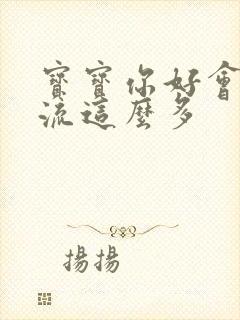 寶寶你好會
流這麼多
揚揚